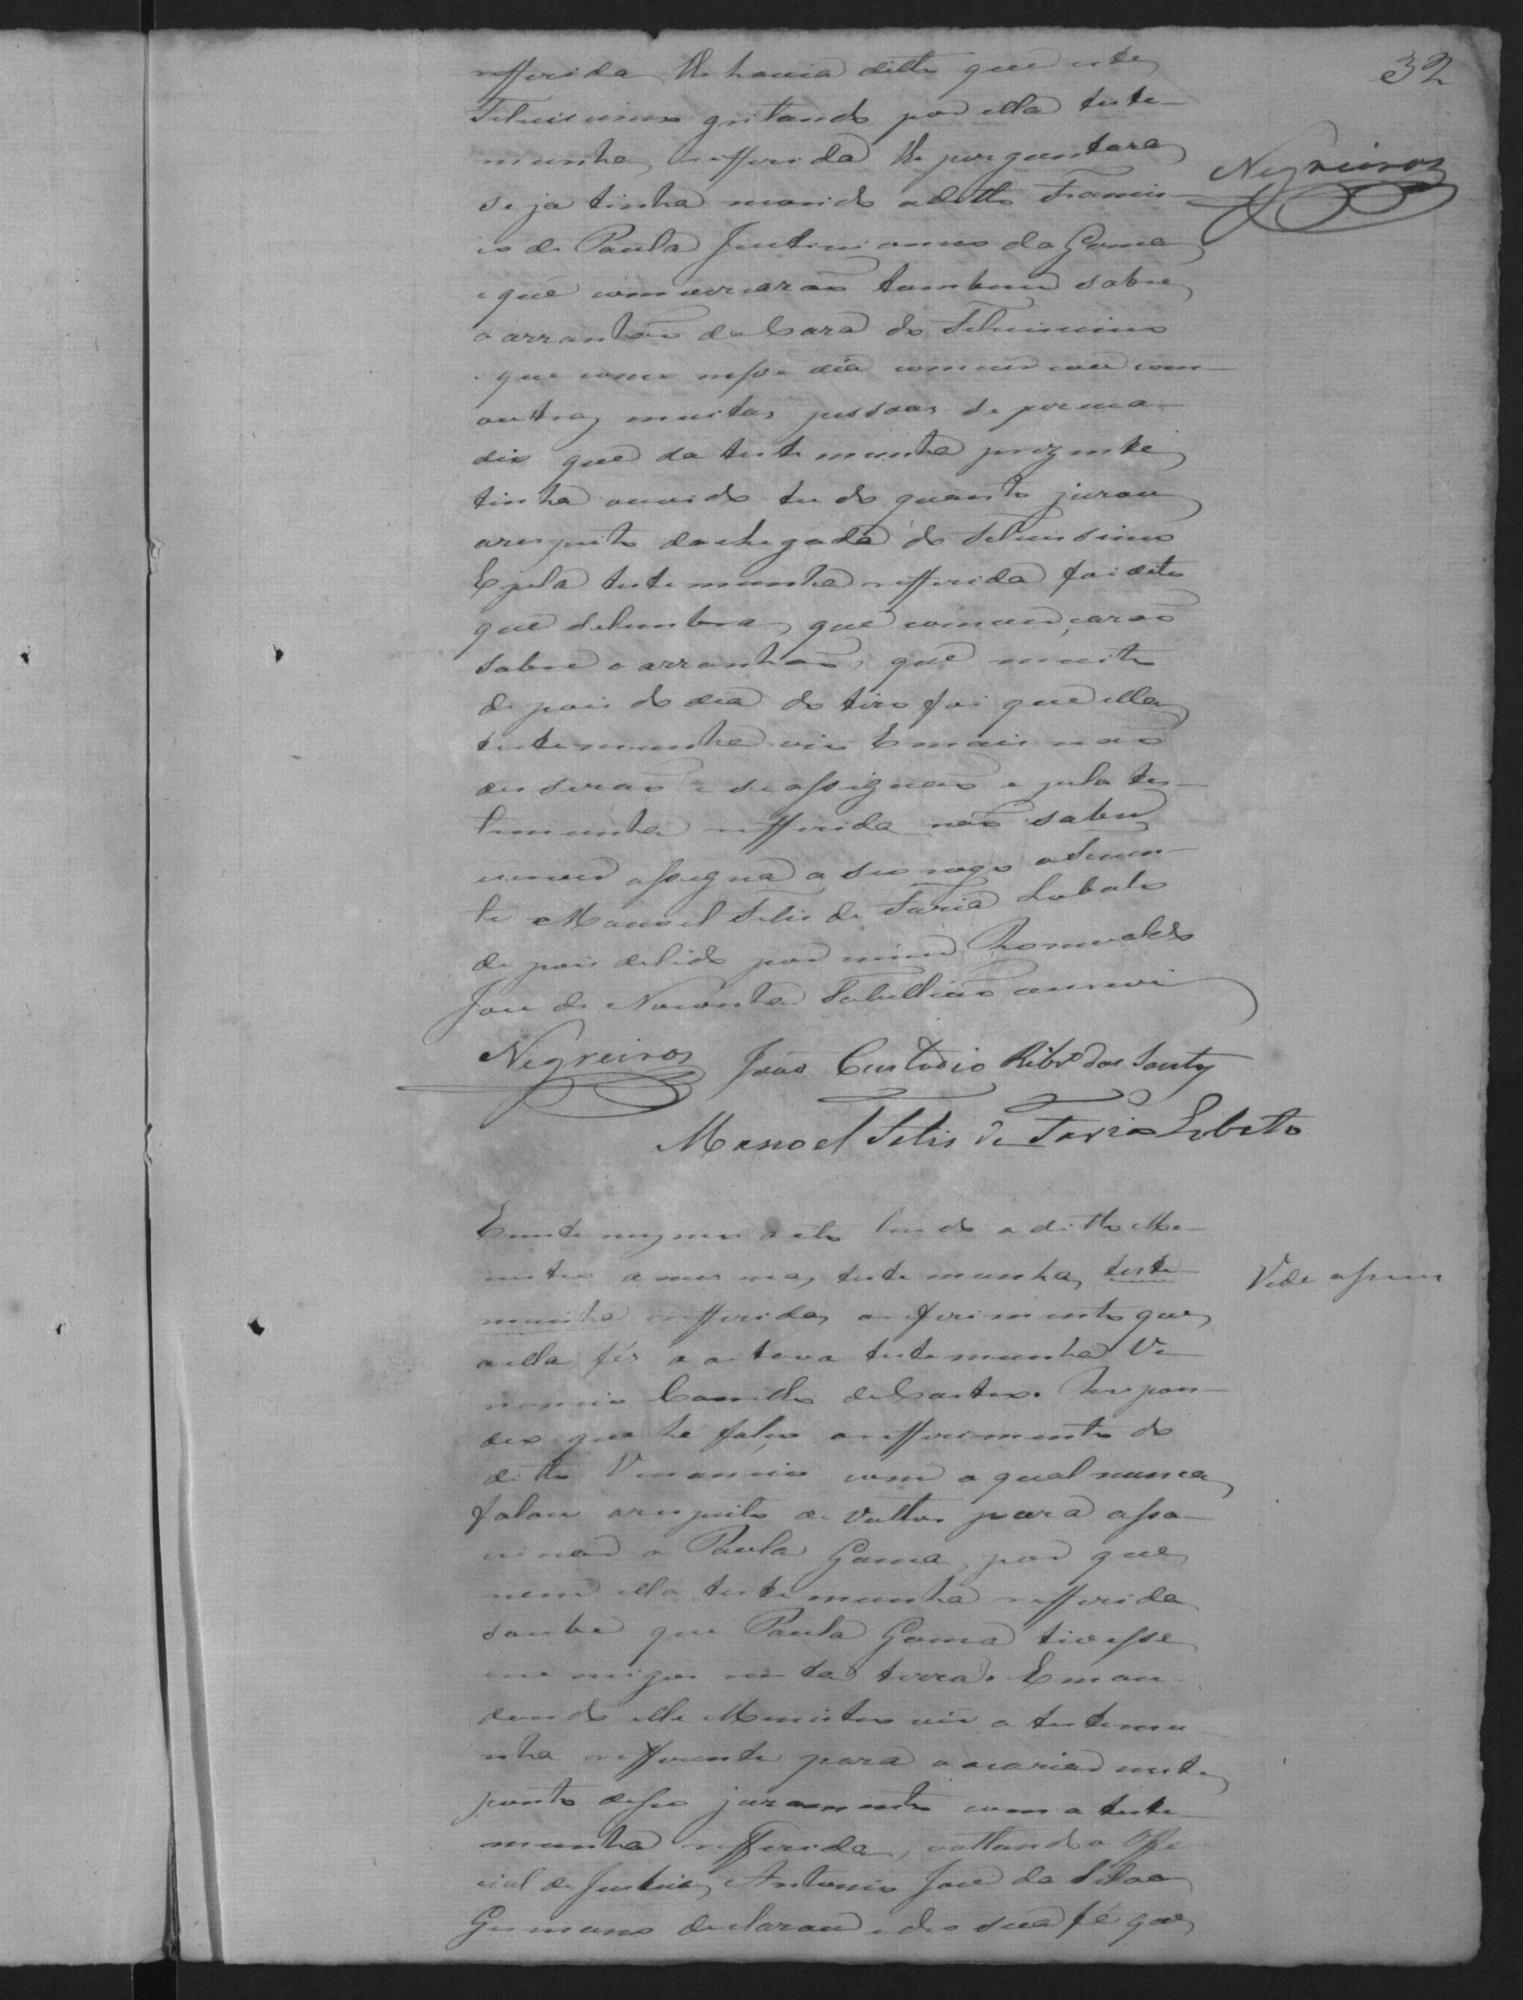 32
Negreiros
refferida lhe havia ditto que este
Felicissimo gritando por ella teste-
munha refferida lhe perguntara
se ja tinha morrido o ditto Francis-
co de Paula Justinianno da Gama
e que comversarão tambem sobre
o arranhão da Cara do Felicissimo
e que como nesse dia comversou com
outras muitas pessoas se persua-
dio que da testemunha prezente
tinha ouvido tudo quanto jurou
arespeito da chegada do Felicissimo
E pela testemunha refferida foi dito
que se lembra que comversarão
sobre o arranhão, que muito
depois do dia do tiro foi que ella
testemunha vio E mais não
disserão e se assignão e pela tes-
temunha refferida não saber
escrever assigna a seu rogo
Manoel Felis de Faria Lobato
depois de lido por mim Romualdo
José de Noronha Tabellião escrevi
Negreiros João Custodio Ribrº dos Santos
Manoel Felis de Faria Lobato
E neste mesmo acto lendo o ditto Me-
nistro a mesma testemunha teste-
Vide assima
munha refferida o referimento que
a ella fés a oitava testemunha Ve-
nancio Camillo de Castro. Respon-
deo que hé falço o refferimento do
ditto Venancio com o qual nunca
falou arespeito de Voltas para assa-
cinar a Paula Gama, por que
nem ella testemunha refferida
soube que Paula Gama tivesse
inemigos nesta terra. E man-
dando elle Menistro vir a testemu-
nha refferente para acariar neste
ponto desse juramento com a teste-
munha refferida, voltando o Offi-
cial de Justiça Antonio José da Silva
Germano declarou e deo sua fé que